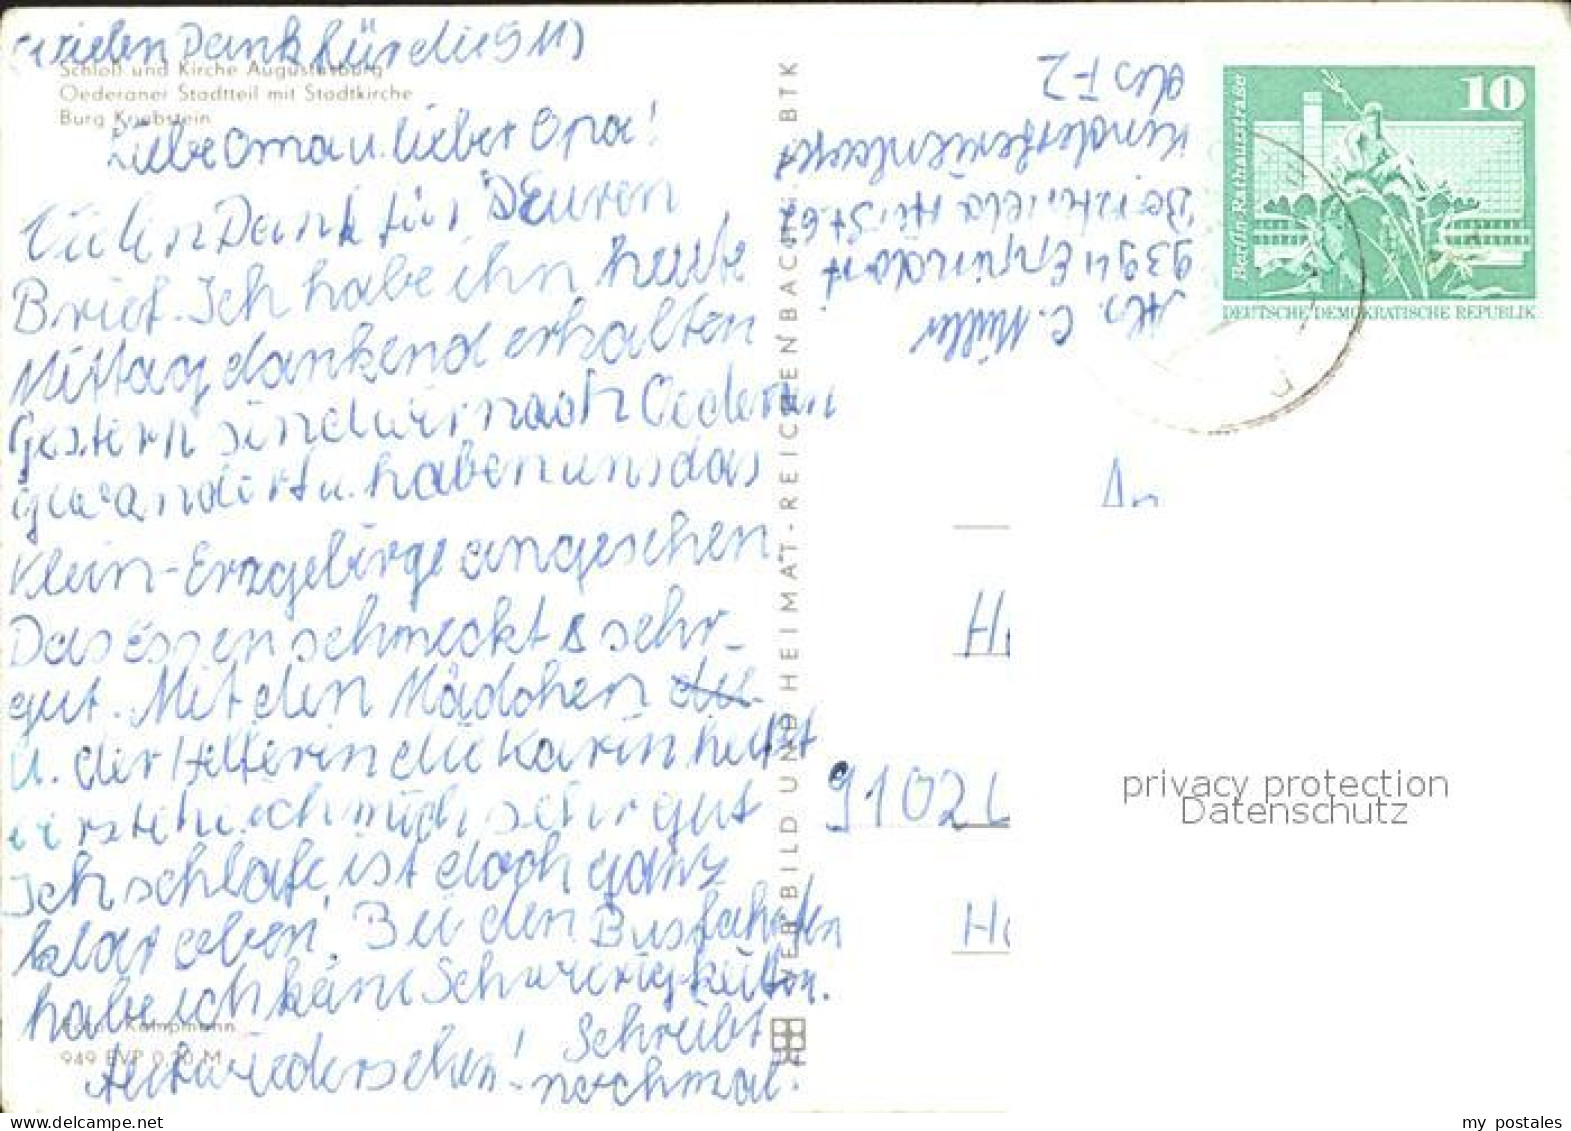 (vielen Dank für die 5 M)
Schloß und Kirche Augustusburg
Oederaner Stadtteil mit Stadtkirche
Burg Kriebstein
Liebe Oma u. lieber Opa!
Vielen Dank für Euren
Brief. Ich habe ihn heute
Mittag dankend erhalten
Gestern sind wir nach Oederan
gewandert u. haben uns das
Klein-Erzgebirge angesehen
Das Essen schmeckt sehr
gut. Mit den Mädchen die
u. der Helferin die Karin heißt
verstehe ich mich sehr gut
Ich schlafe, ist doch ganz
klar oben. Bei den Busfahrten
habe ich keine Schwierigkeiten.
Schreibt
Aufwiedersehen! nochmal.
Foto: Kampmann
949 EVP 0,20 M
VERLAG BILD UND HEIMAT · REICHENBACH BTK
Abs. C. Müller
9394 Erfindorf
Kinderferienlager
10
Berlin, Rathausstraße
DEUTSCHE DEMOKRATISCHE REPUBLIK
An
H
9102 L
H
privacy protection
Datenschutz
my postales